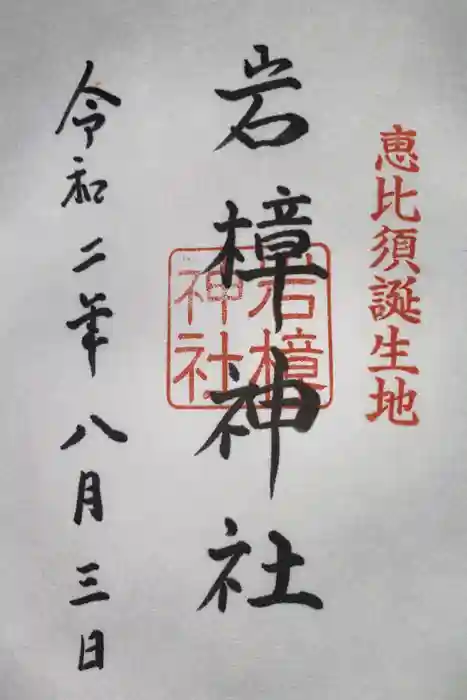 恵比須誕生地
岩樟神社
岩樟
神社
令和二年八月三日